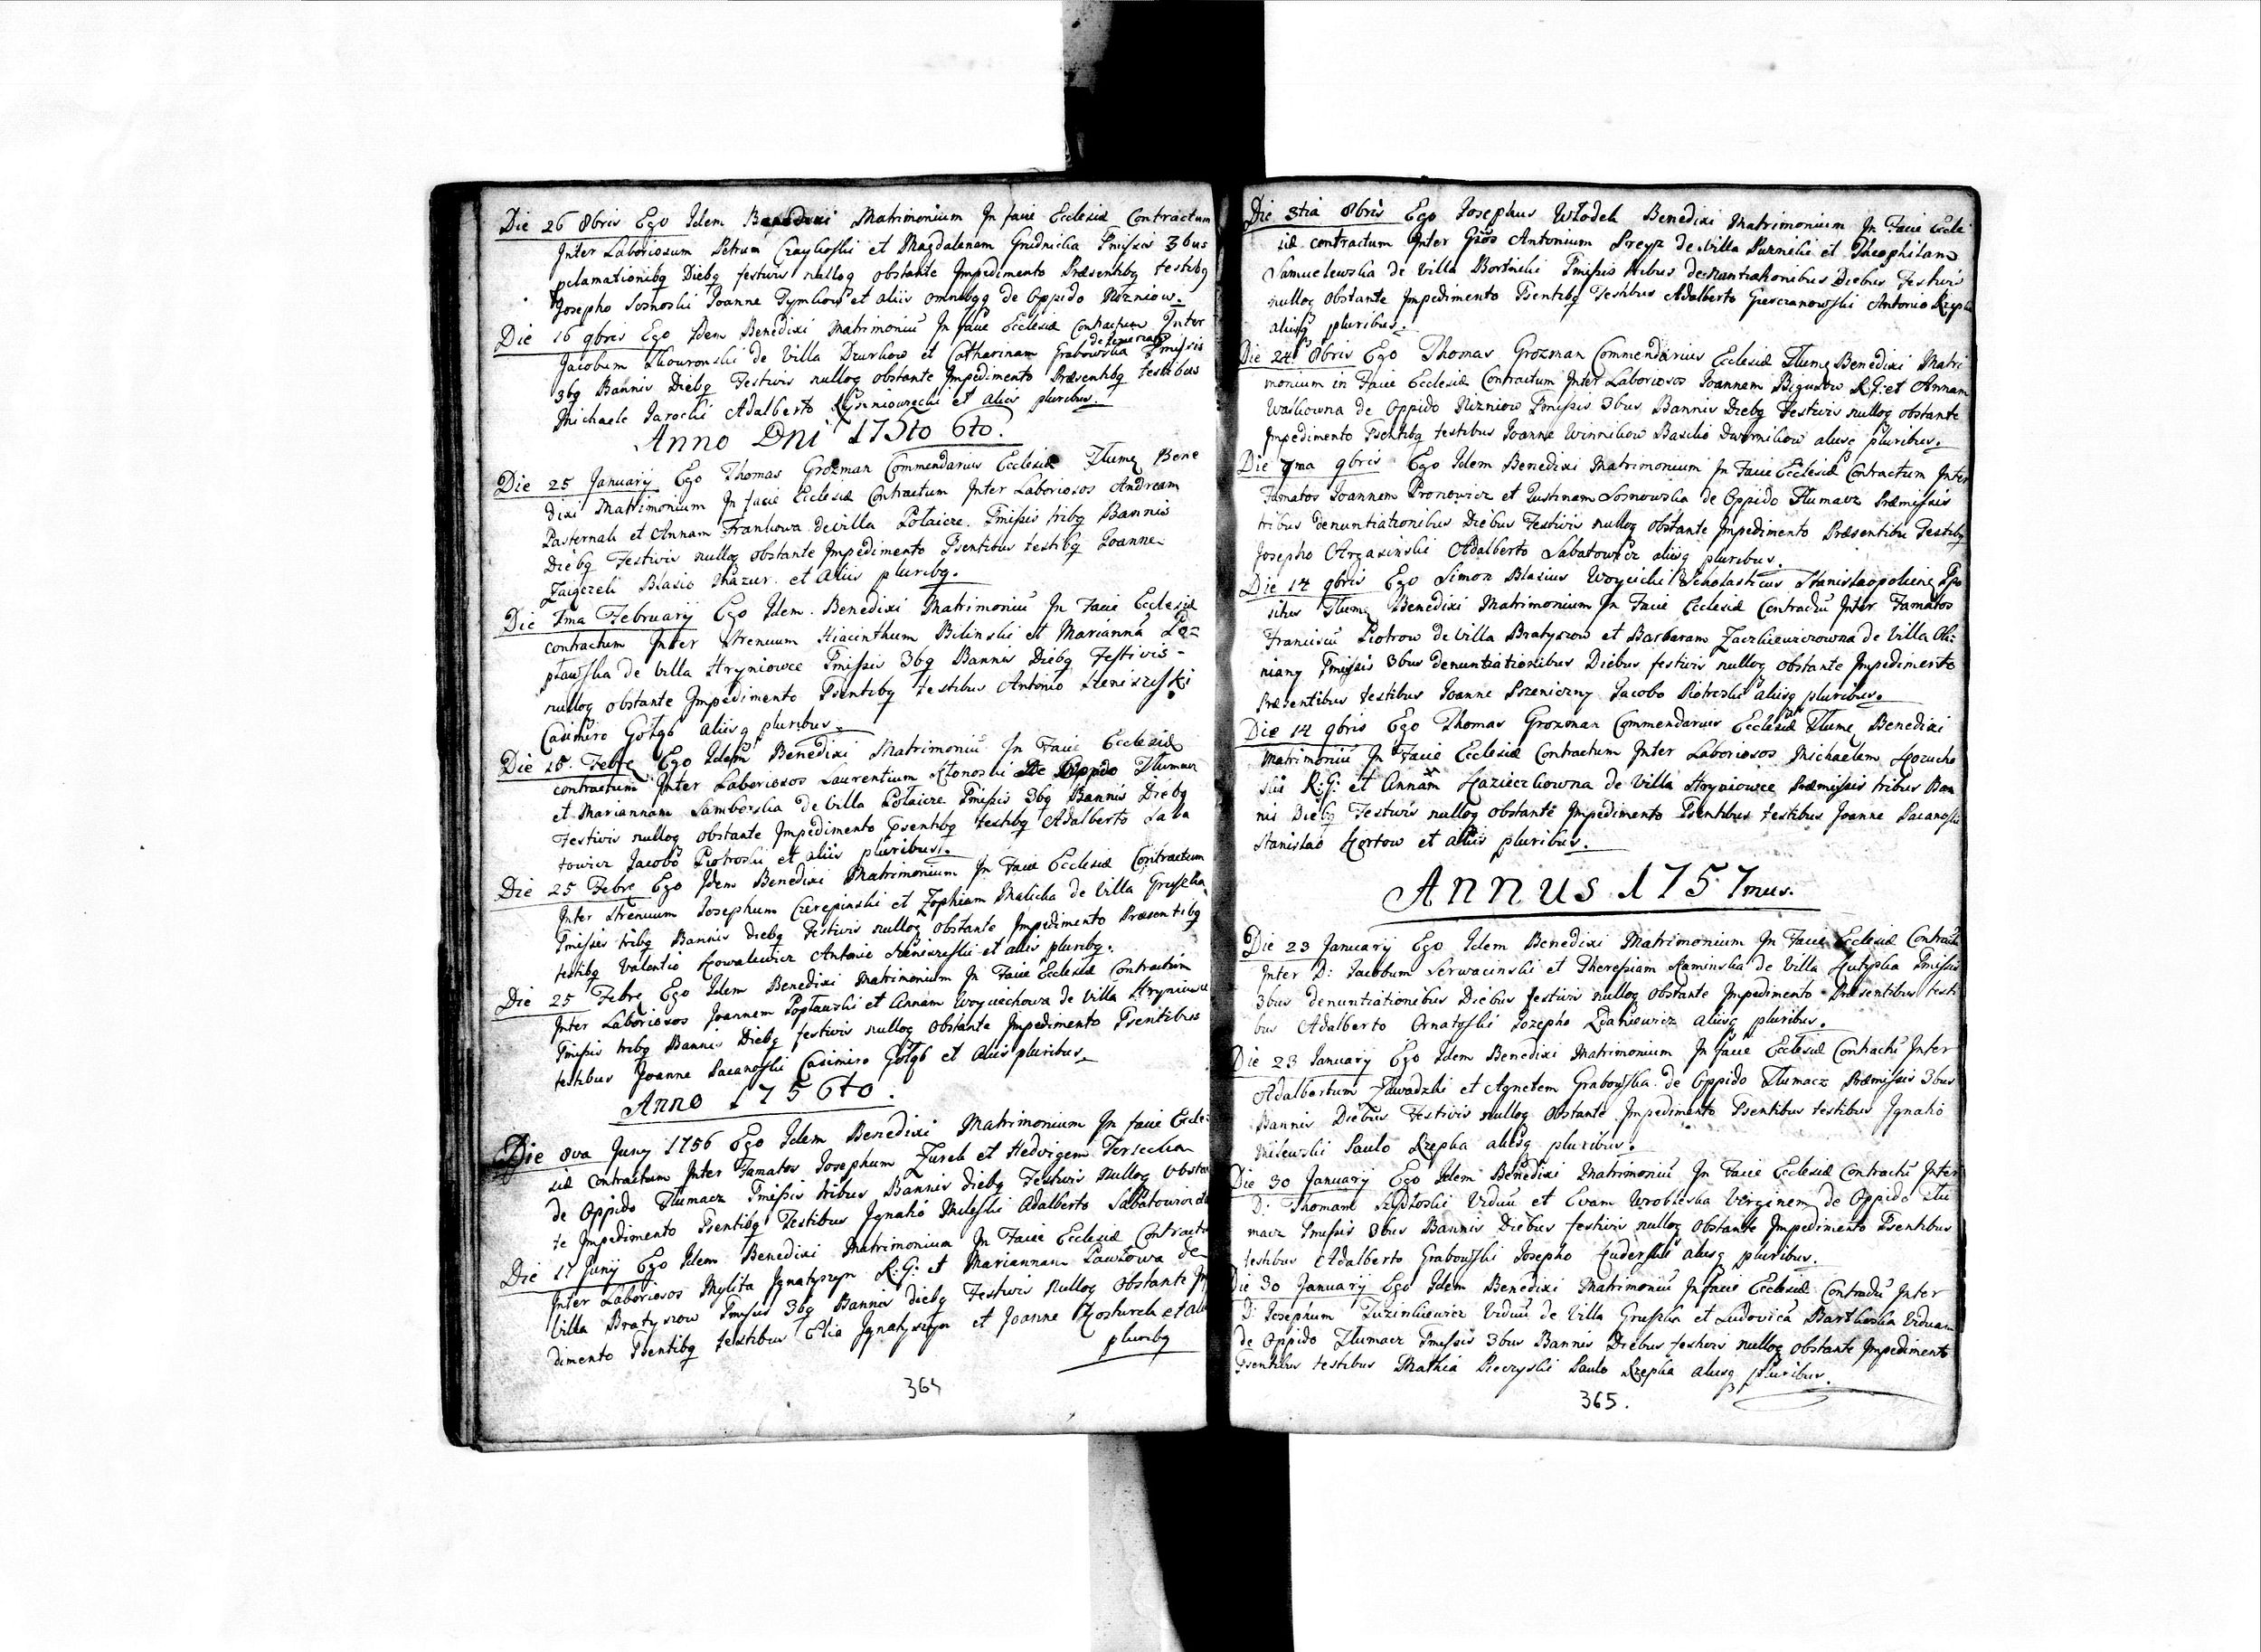 Die 26 8bris Ego Idem Benedixi Matrimonium In facie Ecclesiæ Contractum
Inter Laboriosum Petrum Czaykoski et Magdalenam Gnidnicka Pmissis 3bus
pclamationibq Diebq festivis nulloq obstante Impedimento Præsentibq testibq
Josepho Sosnoski Joanne Tymkow et aliis omnibqq de Oppido Nizniow.
Die 16 9bris Ego Idem Benedixi Matrimoniu In facie Ecclesiæ Contractum Inter
Jacobum Skouronski de Villa Drurkow et Catharinam Grabowska Pmissis
3bq Bannis Diebq Festivis nulloq obstante Impedimento Præsentibq testibus
Michaele Jarocki Adalberto et aliis pluribus.
Anno Dni 175to 6to.
Die 25 January Ego Thomas Grozman Commendarius Ecclesiæ Tlume Bene
dixi Matrimonium In facie Ecclesiæ Contractum Inter Laboriosos Andream
Pasternak et Annam Frankowa de villa Potaicze. Pmissis tribq Bannis
Diebq Festivis nulloq obstante Impedimento Psentibus testibq Joanne
Zaigczeli Blasio Mazur. et aliis pluribq.
Die 7ma February Ego Idem. Benedixi Matrimoniu In Facie Ecclesiæ
contractum Inter Strenuum Hiacinthum Bilinski et Marianna Po=
ptawska de Villa Hryniowce Pmissis 3bq Bannis Diebq Festivis-
nulloq obstante Impedimento Psentibq testibus Antonio
Casimiro Gołąb aliisq pluribus.
Die 15. Febre Ego Idem Benedixi Matrimoniu In Facie Ecclesiæ
contractum Inter Laboriosos Laurentium Kłonoski De Oppido Tlumacz
et Mariannam Samborska de Villa Potaicze Pmissis 3bq Bannis Diebq
Festivis nulloq obstante Impedimento Psentibq testibq Adalberto Saba
towicz Jacobo Piotroski et aliis pluribus.
Die 25 Febre Ego Idem Benedixi Matrimonium In Facie Ecclesiæ Contractum
Inter Strenuum Josephum Czerepinski et Zophiam Malicka de Villa Gruszka
Pmissis tribq Bannis diebq Festivis nulloq obstante Impedimento Præsentibq
testibq Valentio Kowalewicz Antonio et aliis pluribq.
Die 25 Febre Ego Idem Benedixi Matrimonium In Facie Ecclesiæ Contractum
Inter Laboriosos Joannem Poptauski et Annam Woyciechowa de Villa Hryniowce
Pmissis tribq Bannis Diebq festivis nulloq obstante Impedimento Psentibus
testibus Joanne Pacanoski Casimiro Gołąb et aliis pluribus
Anno 1756to.
Die 8va Juny 1756 Ego Idem Benedixi Matrimonium In facie Eccle=
siæ contractum Inter Famatos Josephum Zurek et Hedvigem
de Oppido Tlumacz Pmissis tribus Bannis diebq Festivis Nulloq obstan
te Impedimento Psentibq Testibus Ignatio Mileski Adalberto
Die 17 Juny Ego Idem Benedixi Matrimonium In Facie Ecclesiæ Contractu
Inter Laboriosos Mykita Ignatyszyn R:G: et Mariannam Pawłowa de
Villa Bratyszow Pmissis 3bq Bannis diebq Festivis Nulloq obstante Im
dimento Psentibq testibus Elia Ignatyszyn et Joanne Kosturek et aliis
pluribq
364
Die 3tia 8bris Ego Josephus Włodek Benedixi Matrimonium In Facie Eccle
siæ contractum Inter Antonium Preyz de villa Puzniki et Theophilam
Samuelewska de Villa Bortniki Pmissis tribus denuntiationibus Diebus Festivis
nulloq obstante Impedimento Psentibq Testibus Adalberto Antonio Rzepka
aliisq pluribus.
Die 24 8bris Ego Thomas Grozman Commendarius Ecclesiæ Tlume Benedixi Matri
monium in Facie Ecclesiæ Contractum Inter Laboriosos Joannem Bigusow R.G: et Annam
Waskowna de Oppido Nizniow Pmissis 3bus Bannis Diebq Festivis nulloq obstante
Impedimento Psentibq testibus Joanne Winnikow Basilio Dwornikow aliisq pluribus.
Die 7ma 9bris Ego Idem Benedixi Matrimonium In Facie Ecclesiæ Contractum Inter
Famatos Joannem Pronowicz et Justinam Sosnowska de Oppido Tlumacz Præmissis
tribus denuntiationibus Diebus Festivis nulloq obstante Impedimento Præsentibu Testibq
Josepho Argasinski Adalberto Sabatowicz aliisq pluribus.
Die 14 9bris Ego Simon Blasius Woycicki Scholasticus Stanislaopoliens Ppo
situs Tlume Benedixi Matrimonium In Facie Ecclesiæ Contractu Inter Famatos
Franciscu Piotrow de Villa Bratyszow et Barbaram Zaczkiewiczowna de Villa Ok=
niany Pmissis 3bus denuntiationibus Diebus festivis nulloq obstante Impedimento
Præsentibus testibus Joanne Pszeniczny Jacobo Piotroski aliisq pluribus.
Die 14 9bris Ego Thomas Grozman Commendarius Ecclesiæ Tlume Benedixi
Matrimoniu In Facie Ecclesiæ Contractum Inter Laboriosos Michaelem Kozucho
ski R:G: et Annam Kazieczkowna de Villa Hryniowce Præmissis tribus Ban
nis Diebq Festivis nulloq obstante Impedimento Psentibus testibus Joanne Pacanoski
Stanislao Kortow et aliis pluribus.
Annus 1757mus.
Die 23 January Ego Idem Benedixi Matrimonium In Facie Ecclesiæ Contractu
Inter D: Jacobum Serwacinski et Theressiam Kaminska de Villa Kutyska Pmissis
3bus denuntiationibus Diebus festivis nulloq obstante Impedimento Præsentibus testi
bus Adalberto Ornatoski Jozepho Zdanowicz aliisq pluribus.
Die 23 January Ego Idem Benedixi Matrimonium In facie Ecclesiæ Contractu Inter
Adalbertum Zawadzki et Agnetem Grabowska de Oppido Tlumacz Præmissis 3bus
Bannis Diebus Festivis nulloq obstante Impedimento Psentibus testibus Ignatio
Milewski Paulo Rzepka aliisq pluribus.
Die 30 January Ego Idem Benedixi Matrimoniu In Facie Ecclesiæ Contractu Inter
D: Thomam Szydłoski Viduu et Evam Wroblewska Virginem de Oppido Tlu
macz Pmissis 3bus Bannis Diebus festivis nulloq obstante Impedimento Psentibus
testibus Adalberto Grabowski Josepho Kuderski aliisq pluribus.
Die 30 January Ego Idem Benedixi Matrimoniu In facie Ecclesiæ Contractu Inter
D: Josephum Tuzinkiewicz Viduu de Villa Gruszka et Ludovica Bartkoska Viduam
de Oppido Tlumacz Pmissis 3bus Bannis Diebus festivis nulloq obstante Impedimento
Psentibus testibus Mathia Pieczyski Paulo Rzepka aliisq pluribus.
365.